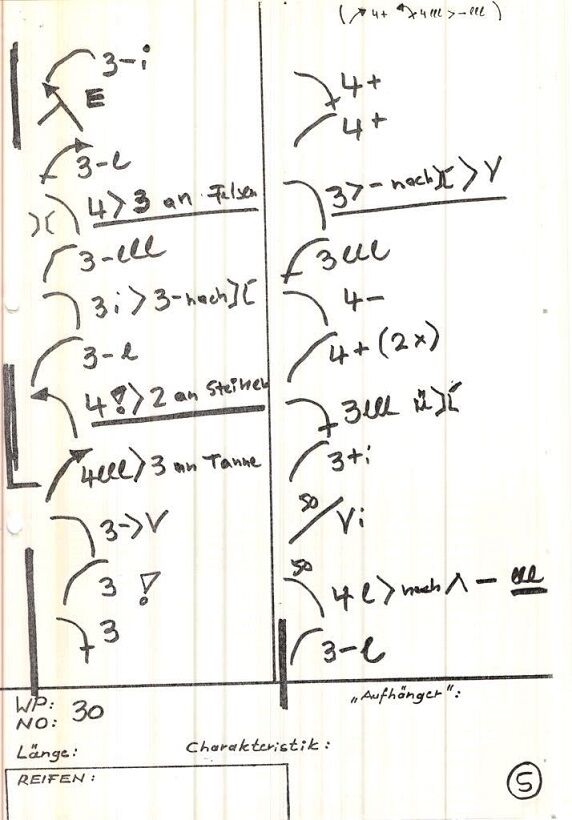 (4+ 4lll>-lll)
3-i
E
3-l
4>3 an Felsen
)(
3-lll
3i>3-nach)(
3-l
4!>2 an Steinen
4lll>3 an Tanne
3->V
3 !
3
4+
4+
3>-nach)(>V
3lll
4-
4+(2x)
3lll ü)(
3+i
50
Vi
50
4l>nach Λ - lll
3-l
WP:
NO: 30
„Aufhänger":
Länge:
Charakteristik:
REIFEN:
5